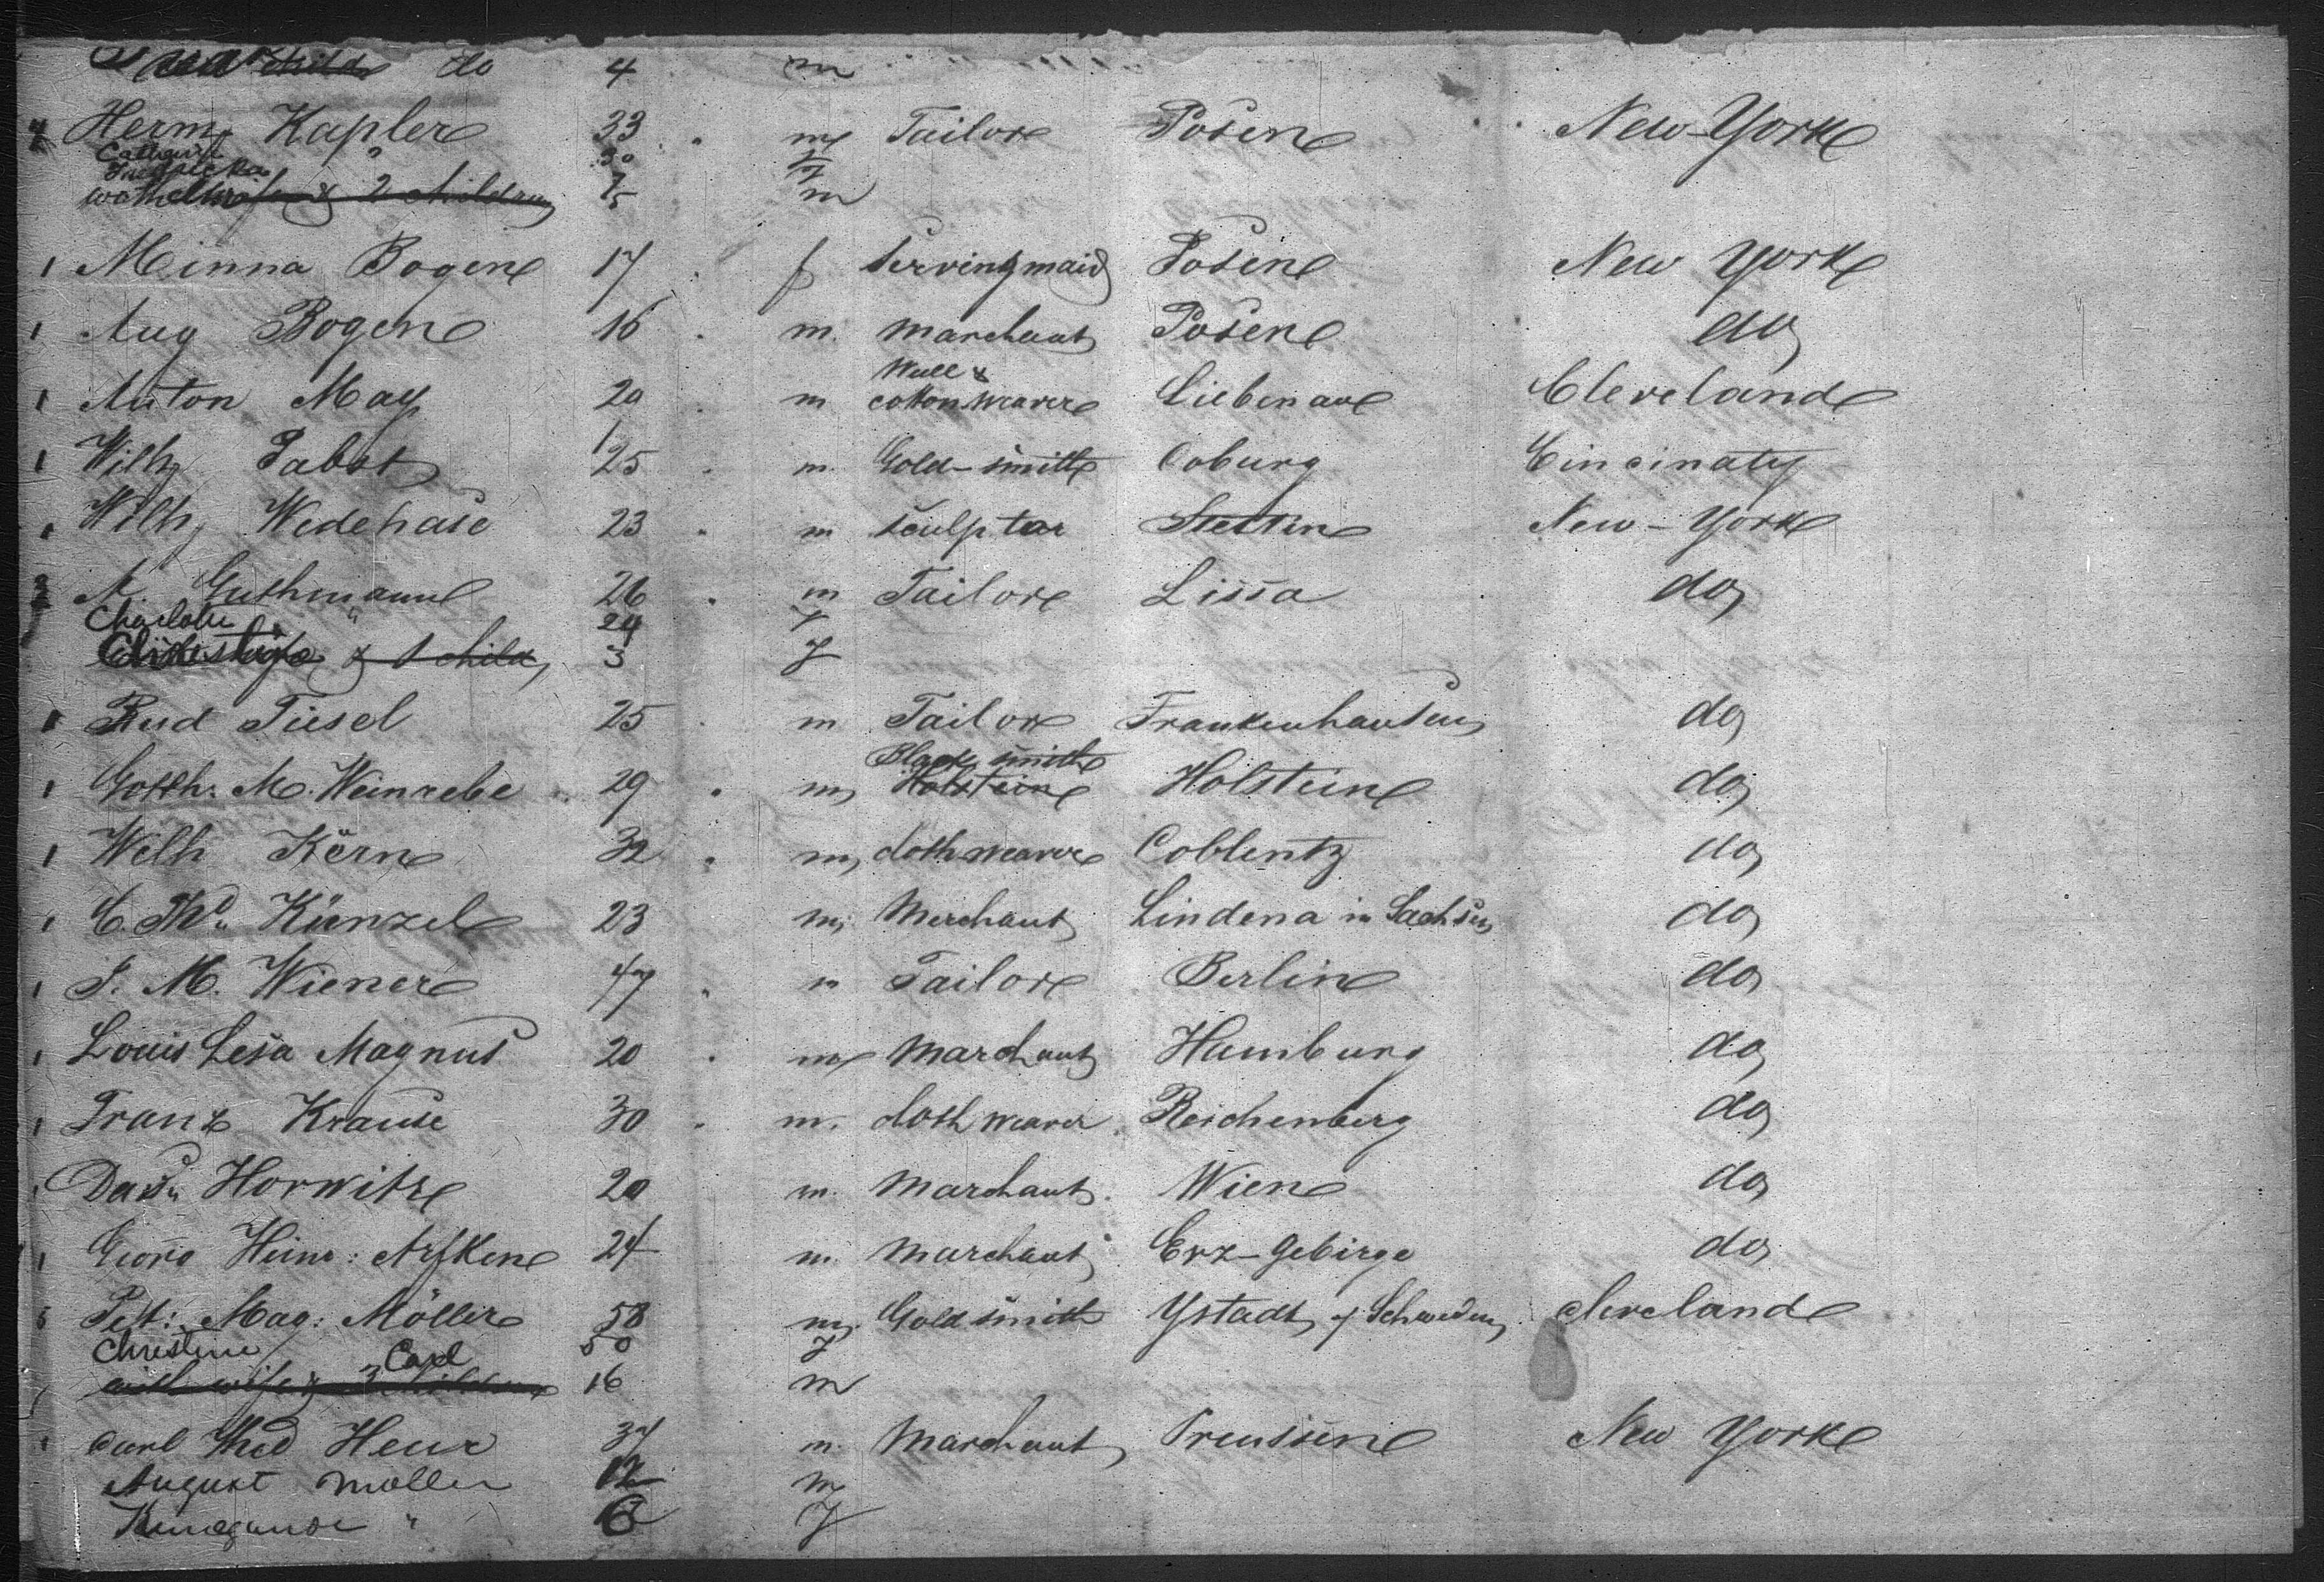 child do 4 m
4 Herm Kapler 33 m Tailor Posen New-York
Cathrine " 30 f
Fredricka 7 f
wife & 2 children 5 m
1 Minna Bogen 17 f Servingmaid Posen New York
1 Aug Bogen 16 m. Marchant Posen do
Wull &
1 Anton May 20 m cotton wearer Liebenau Cleveland
1 Wilh Pabst 25 m. Gold-smith Coburg Cincinaty
1 Wilh Wedehase 23 m sculptor Stettin New-York
3 M. Guthmann 26 m Tailor Lissa do
Charlotte " 24 f
& 1 child 3 f
1 Rud Tiesel 25 m Tailor Frankenhausen do
Black smith
1 Gotth. M. Weinrebe 29 m Holstein Holstein do
1 Welh Körn 32 m clothwearer Coblentz do
1 C. Künzel 23 m Merchant Lindena in Sachsen do
1 J. M. Wiener 47 m Tailor Berlin do
1 Louis Lesa Magnus 20 m Marchant Hamburg do
1 Franz Krause 30 m. clothwearer Reichenberg do
1 Davd Horwitz 20 m. Marchant. Wien do
1 Georg Heinr: Arfken 24 m. Marchant Erz-Gebirge do
5 Pet: Mag: Möller 58 m. Goldsmith Ystadt, Schweden Cleveland
Christine 50 f
Carl
with wife & 3 children 16 m
1 Carl Heur 37 m. Marchant Preussen New York
August Moller 12 m
Kunegunde " 6 f